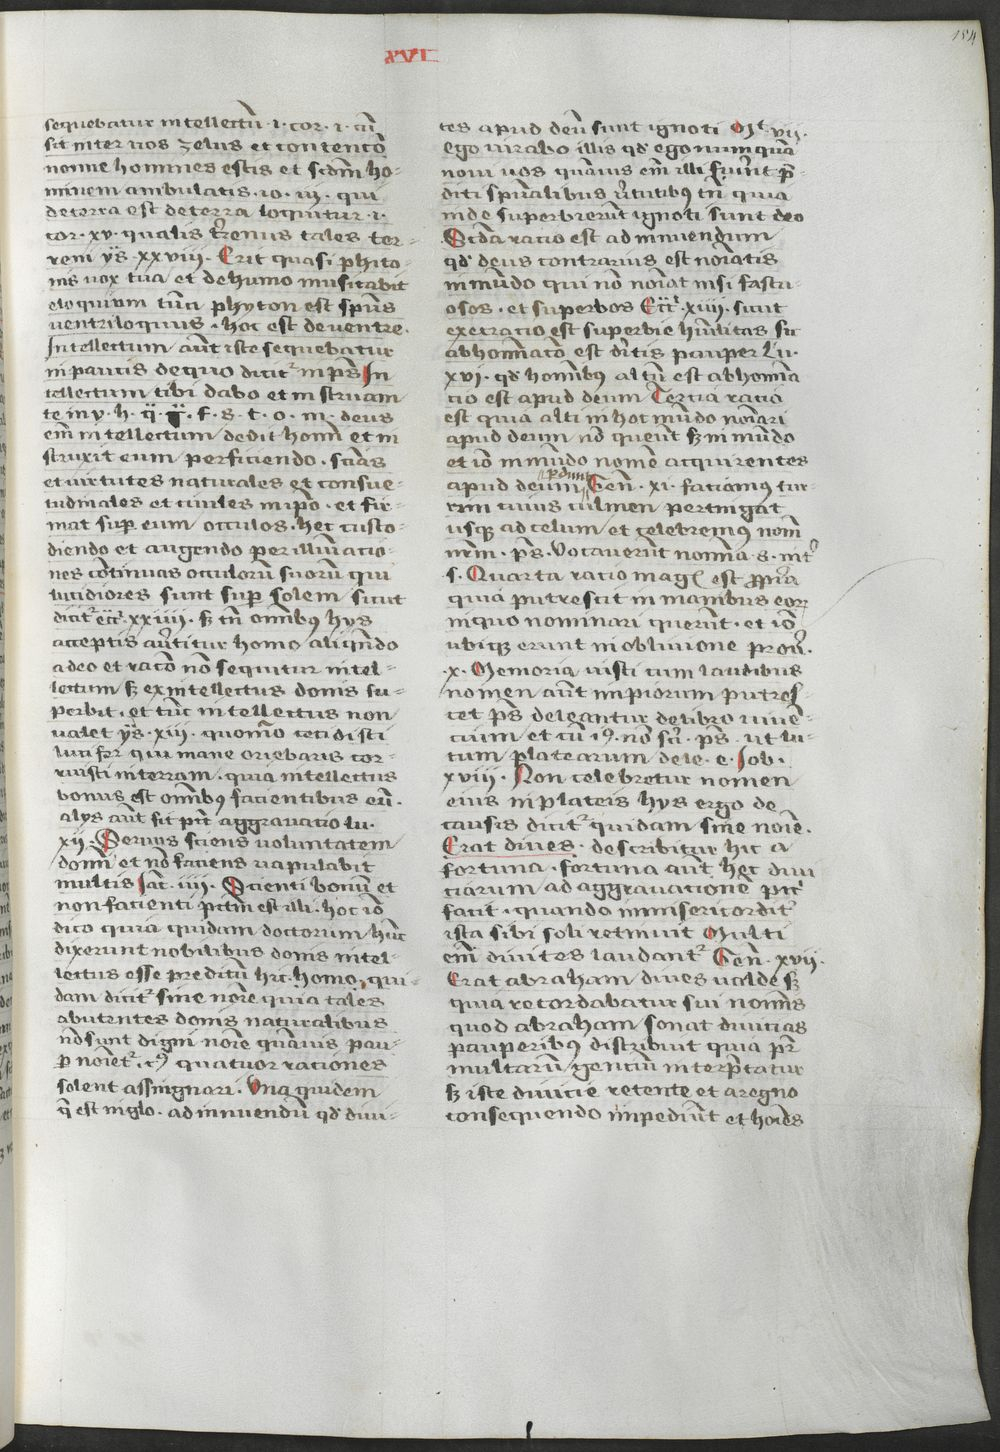 154
XVI
sequebatur intellectū ·i· cor· i· cū
sit inter uos zelus et contentō
nonne homines estis et scdm ho-
minem ambulatis io· iii· qui
de terra est de terra loquitur ·i·
cor· xv· qualis t̄renus tales ter-
reni ys· xxviii· Erit quasi phito-
nis uox tua et de humo musitabit
eloquium tuū phyton est sp̄us
uentriloquus · hoc est de uentre.
Intellectum aūt iste sequebatur
in paucis de quo dicitʳ in ps̄ In
tellectum tibi dabo et instruam
te in v· h· q̄· f· s· t· o· m· deus
em̄ intellectum dedit homī et in
struxit eum perficiendo · scīas
et uirtutes naturales et consue-
tudinales et ciuiles in ip̄o · et fir-
mat sup̄ eum occulos · hec custo-
diendo et augendo per illūinacio-
nes cōtinuas occulorū suorū qui
lucidiores sunt sup̄ solem sicut
dicitʳ ecc̄ⁱ xxiiii· sꝫ tn̄ om̄ibus hys
acceptis au̓titur homo aliqn̄do
a deo et racō nō sequitur intel-
lectum sꝫ ex intellectus donis su-
perbit · et tūc intellectus non
ualet ys̄· xiii· quomō cecidisti
lucifer qui mane oriebaris cor-
ruisti in terram · quia intellectus
bonus est om̄ibꝰ facientibus eū·
alys aūt fit pct̄i aggrauatio lu·
xii· Seruus sciens voluntatem
domī et nō faciens uapulabit
multis Iac̄· iiii· Scienti bonū et
non facienti pctm̄ est illi · hoc iō
dico quia quidam doctorum hūc
dixerunt nobilibus donis intel-
lectus esse preditū hic· homo, qui-
dam dicitʳ sine noīe quia tales
abutentes donis naturalibus
nō sunt digni noīe quāuis pau-
p̄ noīetʳ · cꝰ quatuor rationes
solent assingnari · Vna quidem
q̄ est in glo· ad innuendū qđ diui-
tes apud deū sunt ignoti Mᵗ vii·
ego iurabo illis qđ ego nunquā
noui uos quāuis em̄ illi fuēr̄t p̄-
diti sp̄ualibus u̓tutibꝰ tn̄ quia
inde superbierūt ignoti sunt deo
Scda ratio est ad innuendum
qđ deus contrarius est noīatis
in mūdo qui nō noīat nisi fastu-
osos · et superbos Ecc̄ⁱ xiiii· sicut
execratio est superbie hūilitas sic
abhomīacō est dītis pauper Lu·
xvi· qđ homībꝰ altū est abhomīa
cio est apud deum Tercia ratio
est quia alti in hoc mūdo noīari
apud deum nō querūt sꝫ in mūdo
et iō in mūdo nomē acquirentes
apud deum p̄dunt Gen̄· xi· faciamꝰ tur-
rim cuius culmen pertingat
usqꝫ ad celum et celebremꝰ nom̄
nr̄m · ps̄· Vocauerūt nomīa s· int̓
s· Quarta ratio mag̓ est p̄pria
quia putrescit in manibus eoꝝ
in quo nominari querūt · et iō
ubiqꝫ erunt in obliuione prou̓·
·x· Memoria iusti cum laudibus
nomen aūt impiorum putres-
cet ps̄ deleantur de libro viuē-
cium et cū iꝰ· nō sc̄i· ps̄· ut lu-
tum platearum dele· e· Iob·
xviii· Non celebretur nomen
eius in plateis hys ergo de
causis dicitʳ quidam sine noīe.
Erat diues · describitur hic a
fortuna · fortuna aūt hec diui
ciarum ad aggrauacionē pct̄i
facit · quando inmisericorditʳ
ista sibi soli retinuit Multi
em̄ diuites laudantʳ Gen̄· xvii·
Erat abraham diues valde sꝫ
quia recordabatur sui nomīs
quod abraham sonat diuicias
pauperibꝰ distribuit quia pr̄
multarū genciū interp̄tatur
sꝫ iste diuicie retente et a regno
consequendo impediūt et hoīes